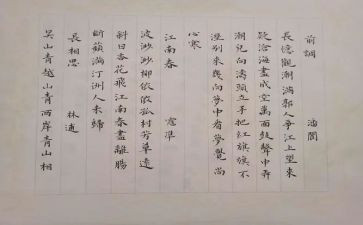 前調 潘閬
長憶觀潮滿郭人爭江上望來
疑滄海盡成空萬面鼓聲中弄
潮兒向濤頭立手把紅旗旗不
溼別來幾向夢中看夢覺尚
心寒
江南春 寇準
波渺渺柳依依孤村芳草遠
斜日杏花飛江南春盡離腸
斷蘋滿汀洲人未歸
長相思 林逋
吳山青越山青兩岸青山相